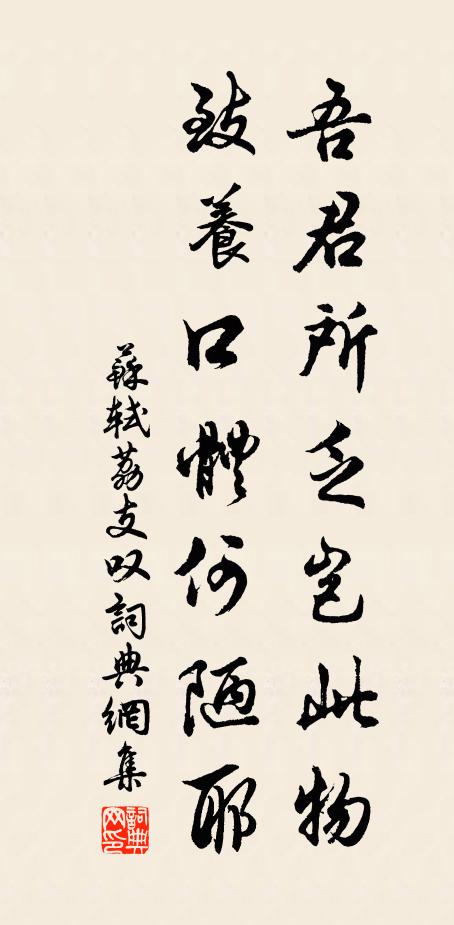 吾君所乏豈此物
致養口體何陋耶
蘇軾荔支叹詞典網集
詞典網印